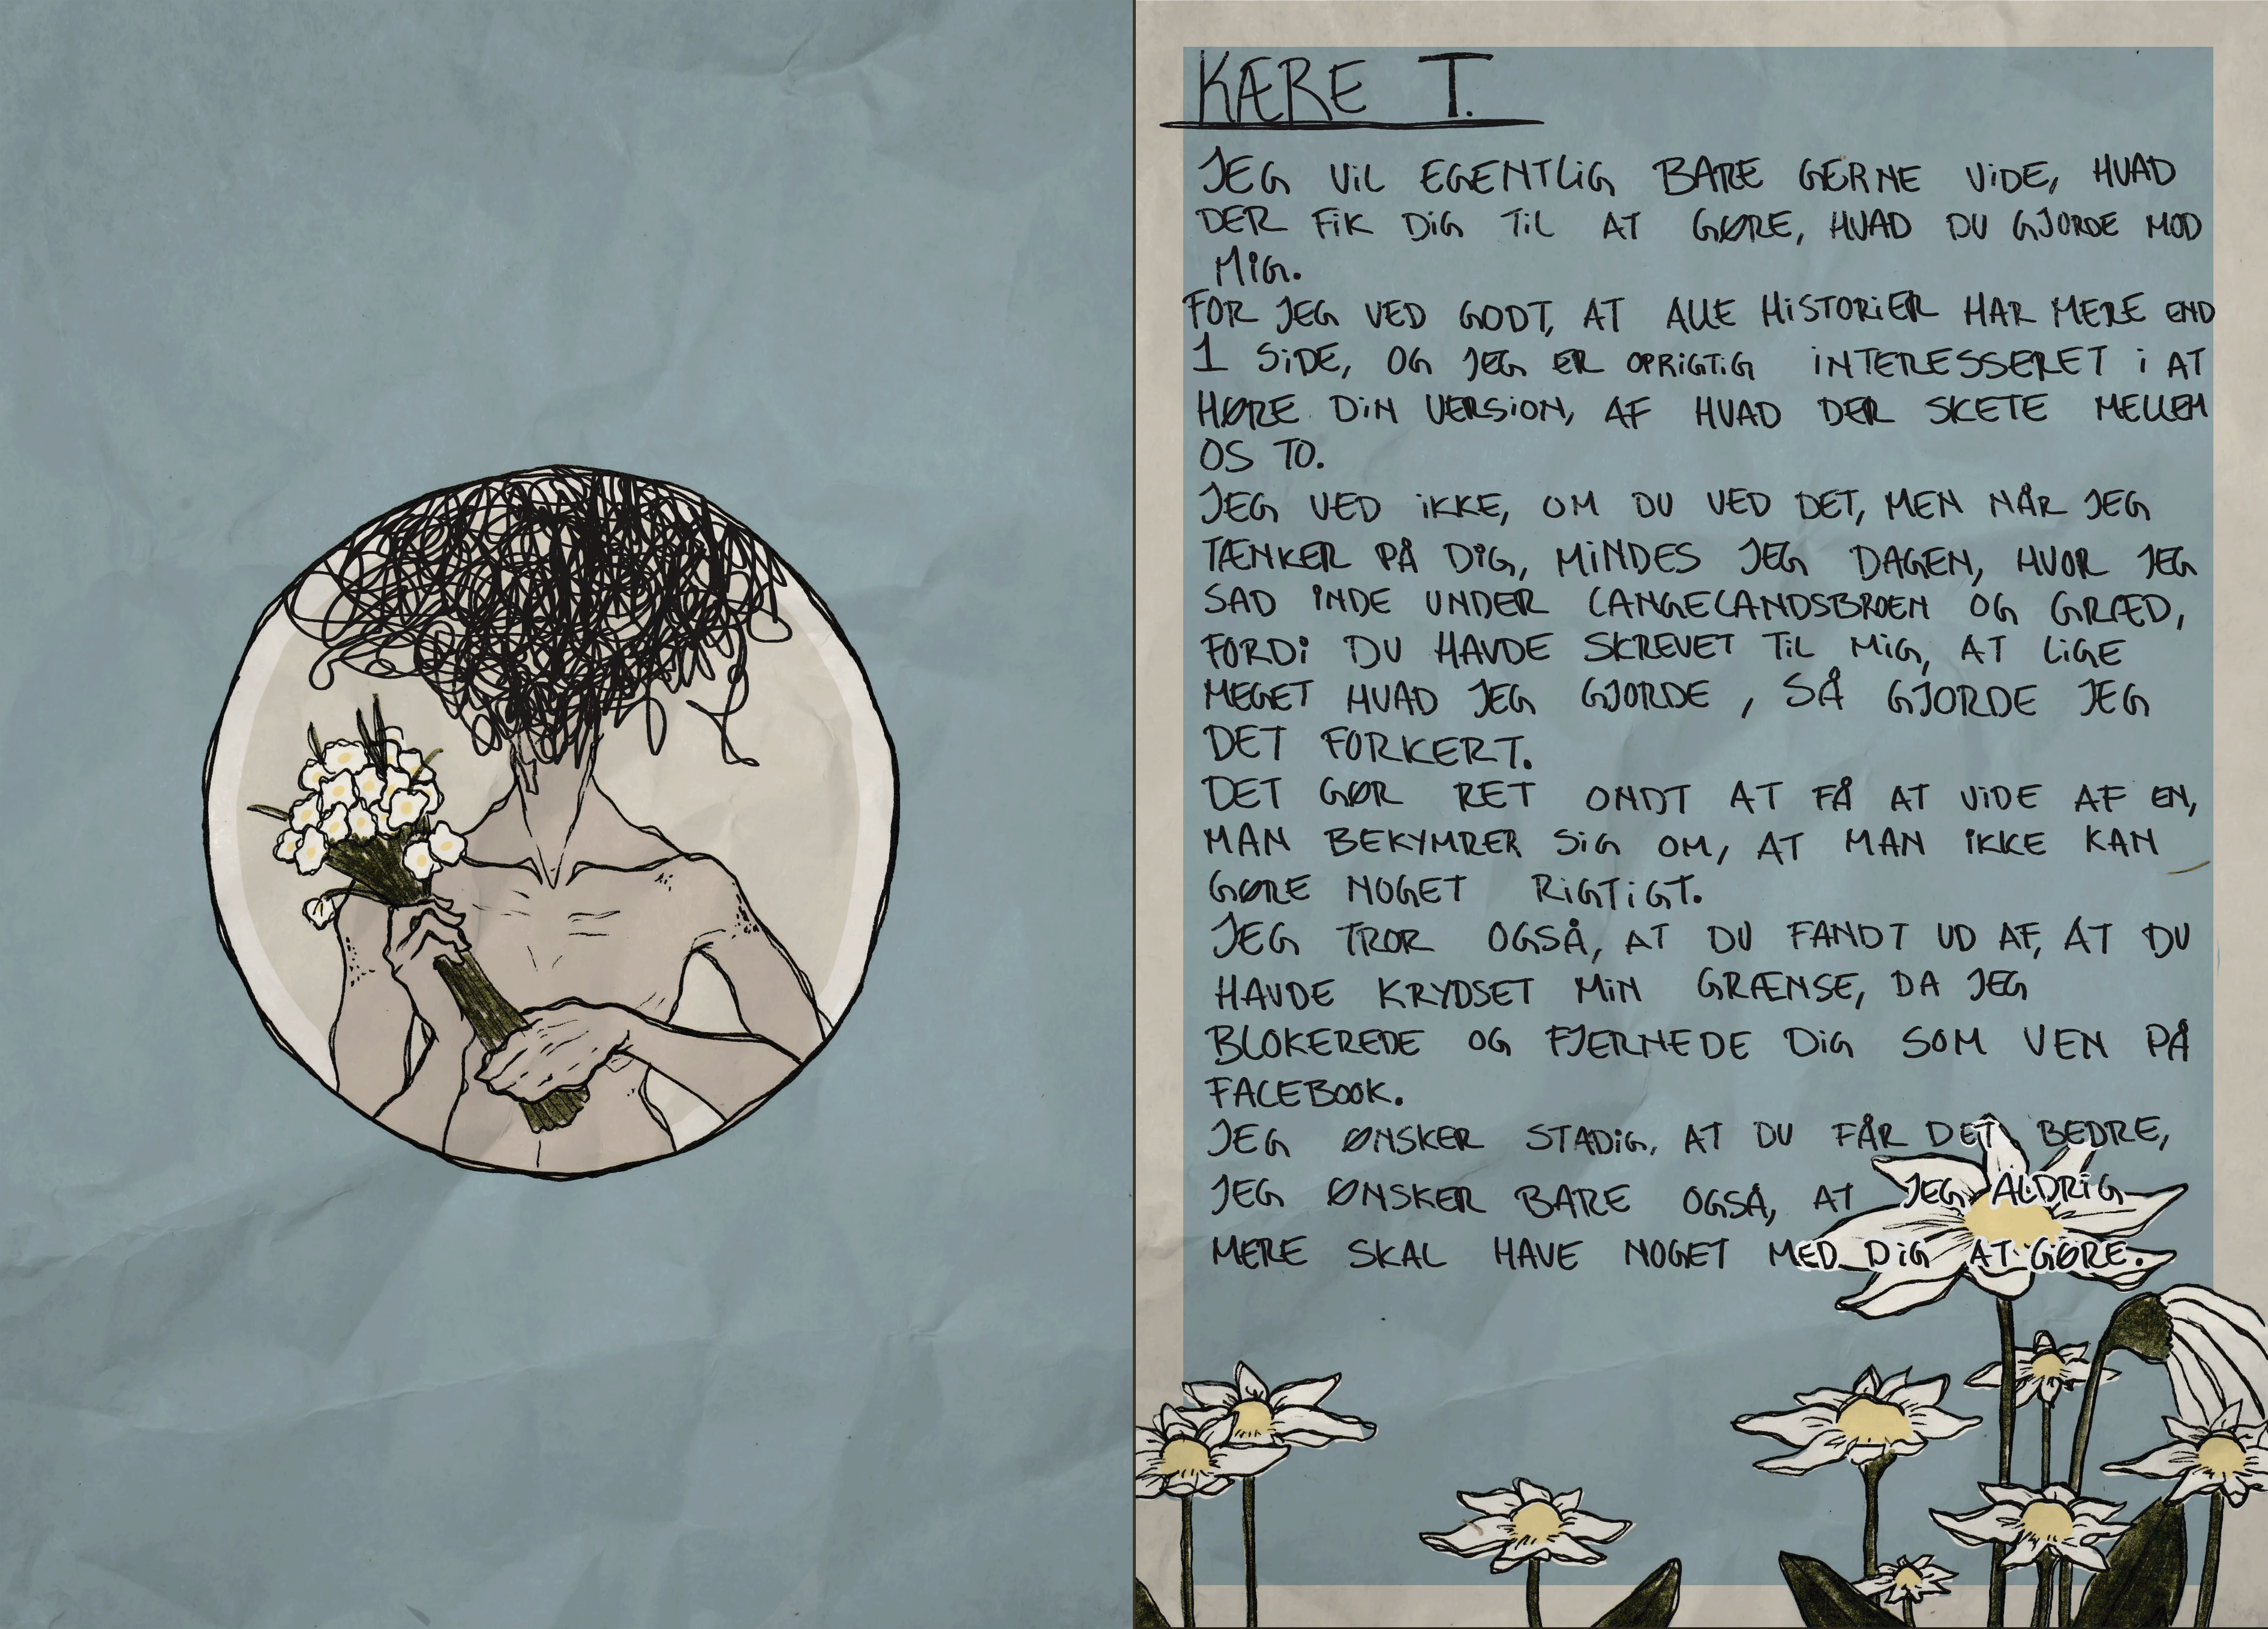 KÆRE T.
JEG VIL EGENTLIG BARE GERNE VIDE, HVAD
DER FIK DIG TIL AT GØRE, HVAD DU GJORDE MOD
MIG.
FOR JEG VED GODT, AT ALLE HISTORIER HAR MERE END
1 SIDE, OG JEG ER OPRIGTIG INTERESSERET I AT
HØRE DIN VERSION, AF HVAD DER SKETE MELLEM
OS TO.
JEG VED IKKE, OM DU VED DET, MEN NÅR JEG
TÆNKER PÅ DIG, MINDES JEG DAGEN, HVOR JEG
SAD INDE UNDER LANGELANDSBROEN OG GRÆD,
FORDI DU HAVDE SKREVET TIL MIG, AT LIGE
MEGET HVAD JEG GJORDE, SÅ GJORDE JEG
DET FORKERT.
DET GØR RET ONDT AT FÅ AT VIDE AF EN,
MAN BEKYMRER SIG OM, AT MAN IKKE KAN
GØRE NOGET RIGTIGT.
JEG TROR OGSÅ, AT DU FANDT UD AF, AT DU
HAVDE KRYDSET MIN GRÆNSE, DA JEG
BLOKEREDE OG FJERNEDE DIG SOM VEN PÅ
FACEBOOK.
JEG ØNSKER STADIG, AT DU FÅR DET BEDRE,
JEG ØNSKER BARE OGSÅ, AT JEG ALDRIG
MERE SKAL HAVE NOGET MED DIG AT GØRE.